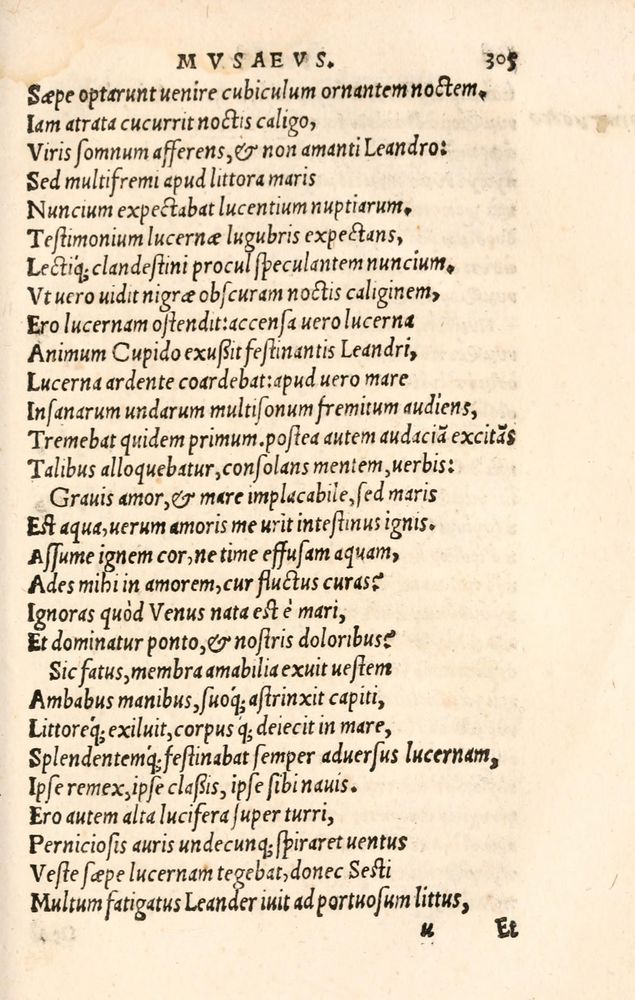 MVSAEVS. 305
Sæpe optarunt uenire cubiculum ornantem noctem.
Iam atrata cucurrit noctis caligo,
Viris somnum afferens, & non amanti Leandro:
Sed multifremi apud littora maris
Nuncium expectabat lucentium nuptiarum.
Testimonium lucernæ lugubris expectans,
Lectiq; clandestini procul speculantem nuncium.
Vt uero uidit nigræ obscuram noctis caliginem,
Ero lucernam ostendit: accensa uero lucerna
Animum Cupido exußit festinantis Leandri,
Lucerna ardente coardebat: apud uero mare
Insanarum undarum multisonum fremitum audiens,
Tremebat quidem primum. postea autem audaciā excitās
Talibus alloquebatur, consolans mentem, uerbis:
Grauis amor, & mare implacabile, sed maris
Est aqua, uerum amoris me urit intestinus ignis.
Assume ignem cor, ne time effusam aquam,
Ades mihi in amorem, cur fluctus curas?
Ignoras quòd Venus nata est è mari,
Et dominatur ponto, & nostris doloribus?
Sic fatus, membra amabilia exuit uestem
Ambabus manibus, suoq; astrinxit capiti,
Littoreq; exiluit, corpus q; deiecit in mare,
Splendentemq; festinabat semper aduersus lucernam,
Ipse remex, ipse claßis, ipse sibi nauis.
Ero autem alta lucifera super turri,
Perniciosis auris undecunq; spiraret uentus
Veste sæpe lucernam tegebat, donec Sesti
Multum fatigatus Leander iuit ad portuosum littus,
u Et